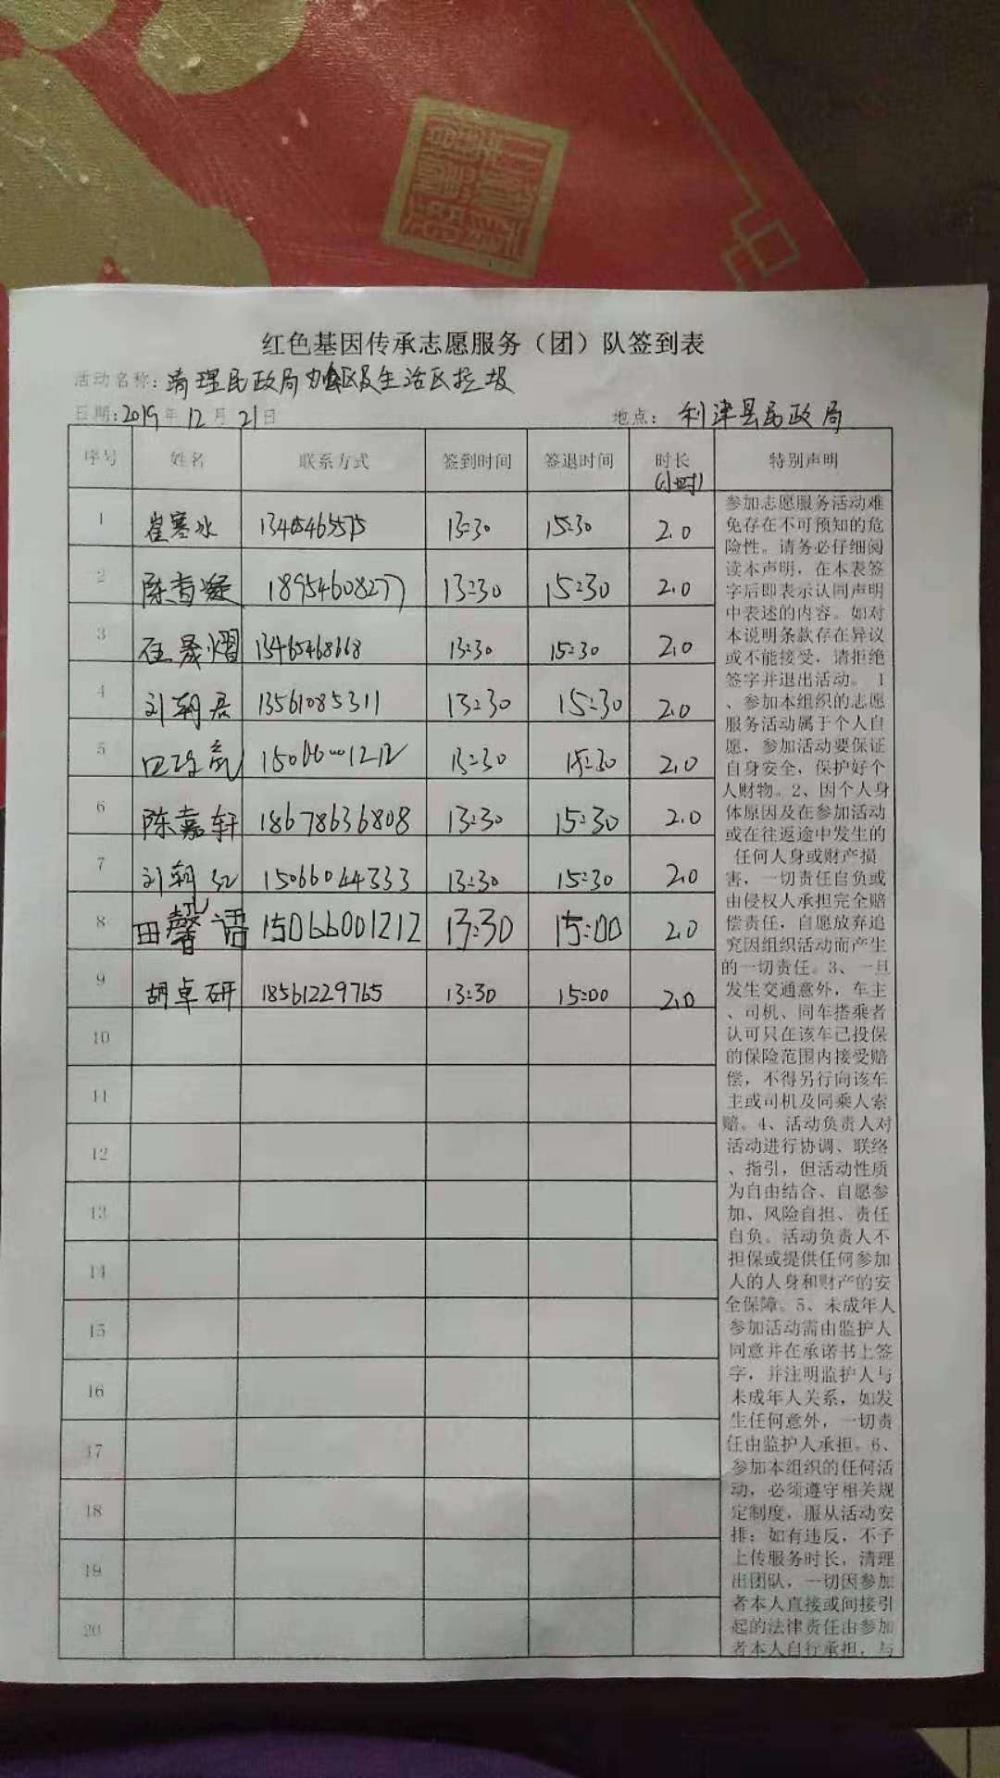 红色基因传承志愿服务（团）队签到表
活动名称：清理民政局办公区及生活区垃圾
日期：2019年12月21日 地点：利津县民政局
序号 姓名 联系方式 签到时间 签退时间 时长（小时） 特别声明
1 崔寒冰 13:30 15:30 2.0
2 陈香凝 18954608277 13:30 15:30 2.0
3 13465468668 13:30 15:30 2.0
4 刘朝君 13561085311 13:30 15:30 2.0
5 13:30 15:30 2.0
6 陈嘉轩 18678636808 13:30 15:30 2.0
7 刘朝 15066044333 13:30 15:30 2.0
8 田馨语 15066001212 13:30 15:00 2.0
9 胡卓研 18561229765 13:30 15:00 2.0
10
11
12
13
14
15
16
17
18
19
20
参加志愿服务活动难
免存在不可预知的危
险性。请务必仔细阅
读本声明，在本表签
字后即表示认同声明
中表述的内容。如对
本说明条款存在异议
或不能接受，请拒绝
签字并退出活动。 1
、参加本组织的志愿
服务活动属于个人自
愿，参加活动要保证
自身安全，保护好个
人财物。2、因个人身
体原因及在参加活动
或在往返途中发生的
任何人身或财产损
害，一切责任自负或
由侵权人承担完全赔
偿责任，自愿放弃追
究因组织活动而产生
的一切责任。3、一旦
发生交通意外，车主
、司机、同车搭乘者
认可只在该车已投保
的保险范围内接受赔
偿，不得另行向该车
主或司机及同乘人索
赔。4、活动负责人对
活动进行协调、联络
、指引，但活动性质
为自由结合、自愿参
加、风险自担、责任
自负。活动负责人不
担保或提供任何参加
人的人身和财产的安
全保障。5、未成年人
参加活动需由监护人
同意并在承诺书上签
字，并注明监护人与
未成年人关系，如发
生任何意外，一切责
任由监护人承担。6、
参加本组织的任何活
动，必须遵守相关规
定制度，服从活动安
排；如有违反，不予
上传服务时长，清理
出团队，一切因参加
者本人直接或间接引
起的法律责任由参加
者本人自行承担，与